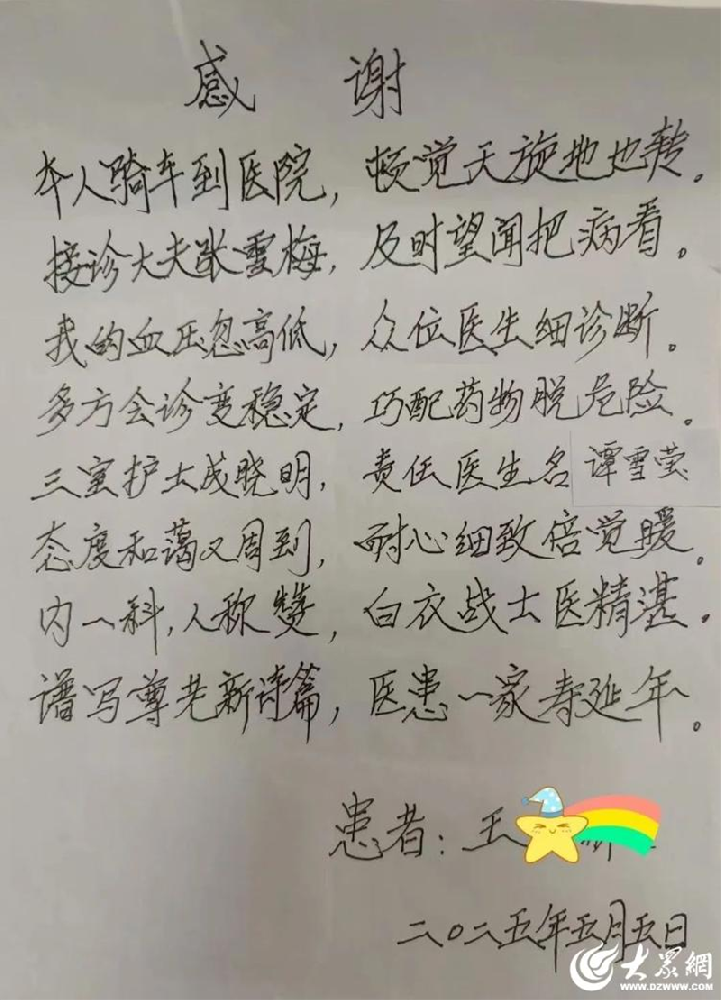 感 谢
本人骑车到医院，顿觉天旋地也转。
接诊大夫张雪梅，及时望闻把病看。
我的血压忽高低，众位医生细诊断。
多方会诊变稳定，巧配药物脱危险。
三室护士成晓明，责任医生名谭雪莹
态度和蔼又周到，耐心细致倍觉暖。
内一科，人称赞，白衣战士医精湛。
谱写尊老新诗篇，医患一家寿延年。
患者：王
二〇二五年五月五日
大众網
WWW.DZWWW.COM